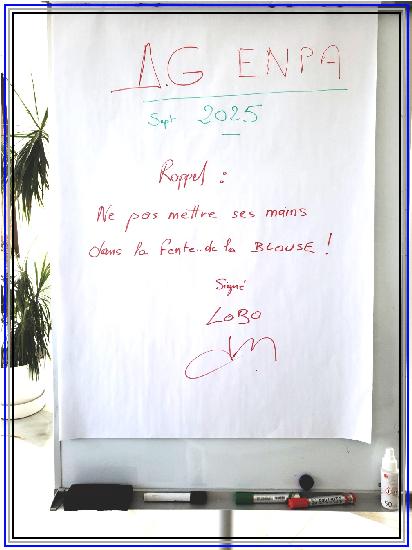 A.G ENPA
Sept 2025
Rappel :
Ne pas mettre ses mains
dans la fente de la BLOUSE !
Signé
LOBO